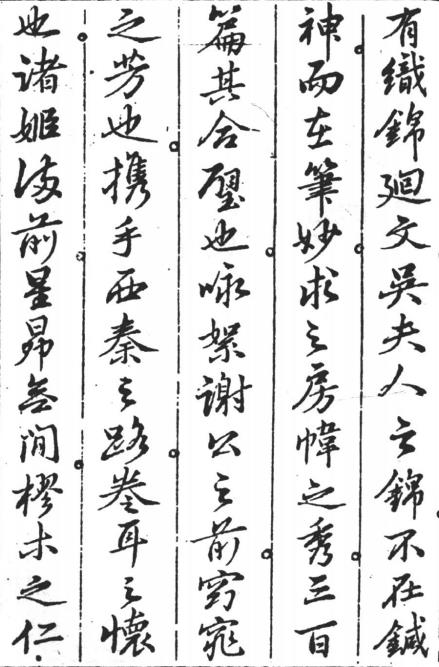 有織錦廻文吳夫人云錦不在鍼
神而在筆妙求之房幃之秀三百
篇其合璧也咏絮謝公之前窈窕
之芳也攜手西秦之路卷耳之懷
也諸姬滿前星昴無間樛木之仁